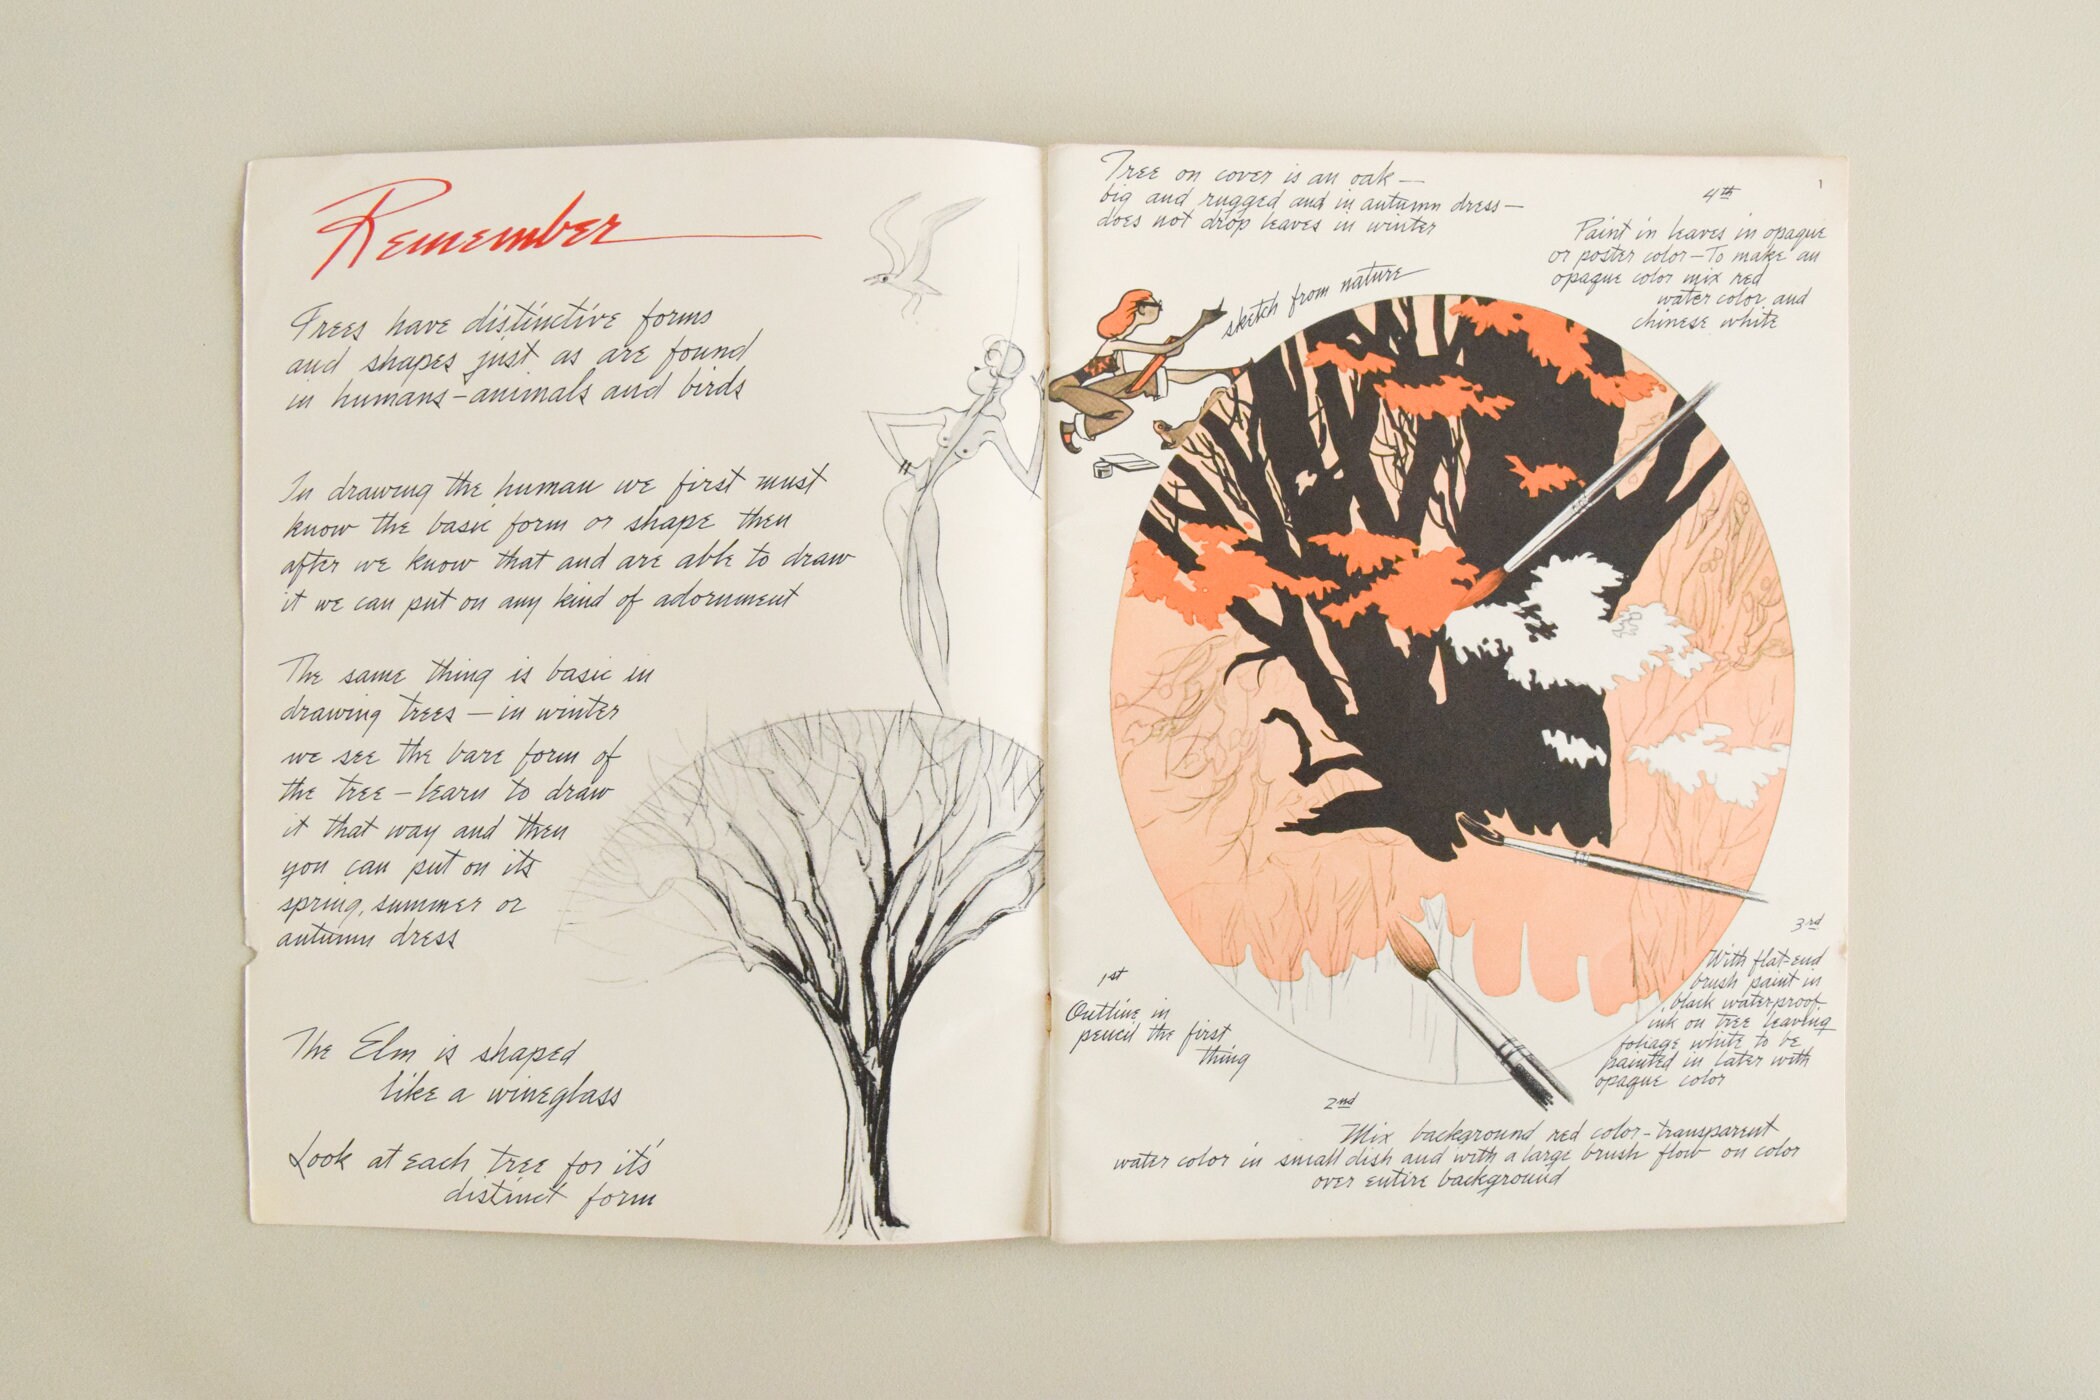 Remember
Trees have distinctive forms
and shapes just as are found
in humans - animals and birds
In drawing the human we first must
know the basic form or shape then
after we know that and are able to draw
it we can put on any kind of adornment
The same thing is basic in
drawing trees — in winter
we see the bare form of
the tree - learn to draw
it that way and then
you can put on its
spring, summer or
autumn dress
The Elm is shaped
like a wineglass
Look at each tree for it's
distinct form
1
Tree on cover is an oak —
big and rugged and in autumn dress —
does not drop leaves in winter
sketch from nature
4th
Paint in leaves in opaque
or poster color - To make an
opaque color mix red
water color and
chinese white
1st
Outline in
pencil the first
thing
3rd
With flat-end
brush paint in
black waterproof
ink on tree leaving
foliage white to be
painted in later with
opaque color
2nd
Mix background red color - transparent
water color in small dish and with a large brush flow on color
over entire background